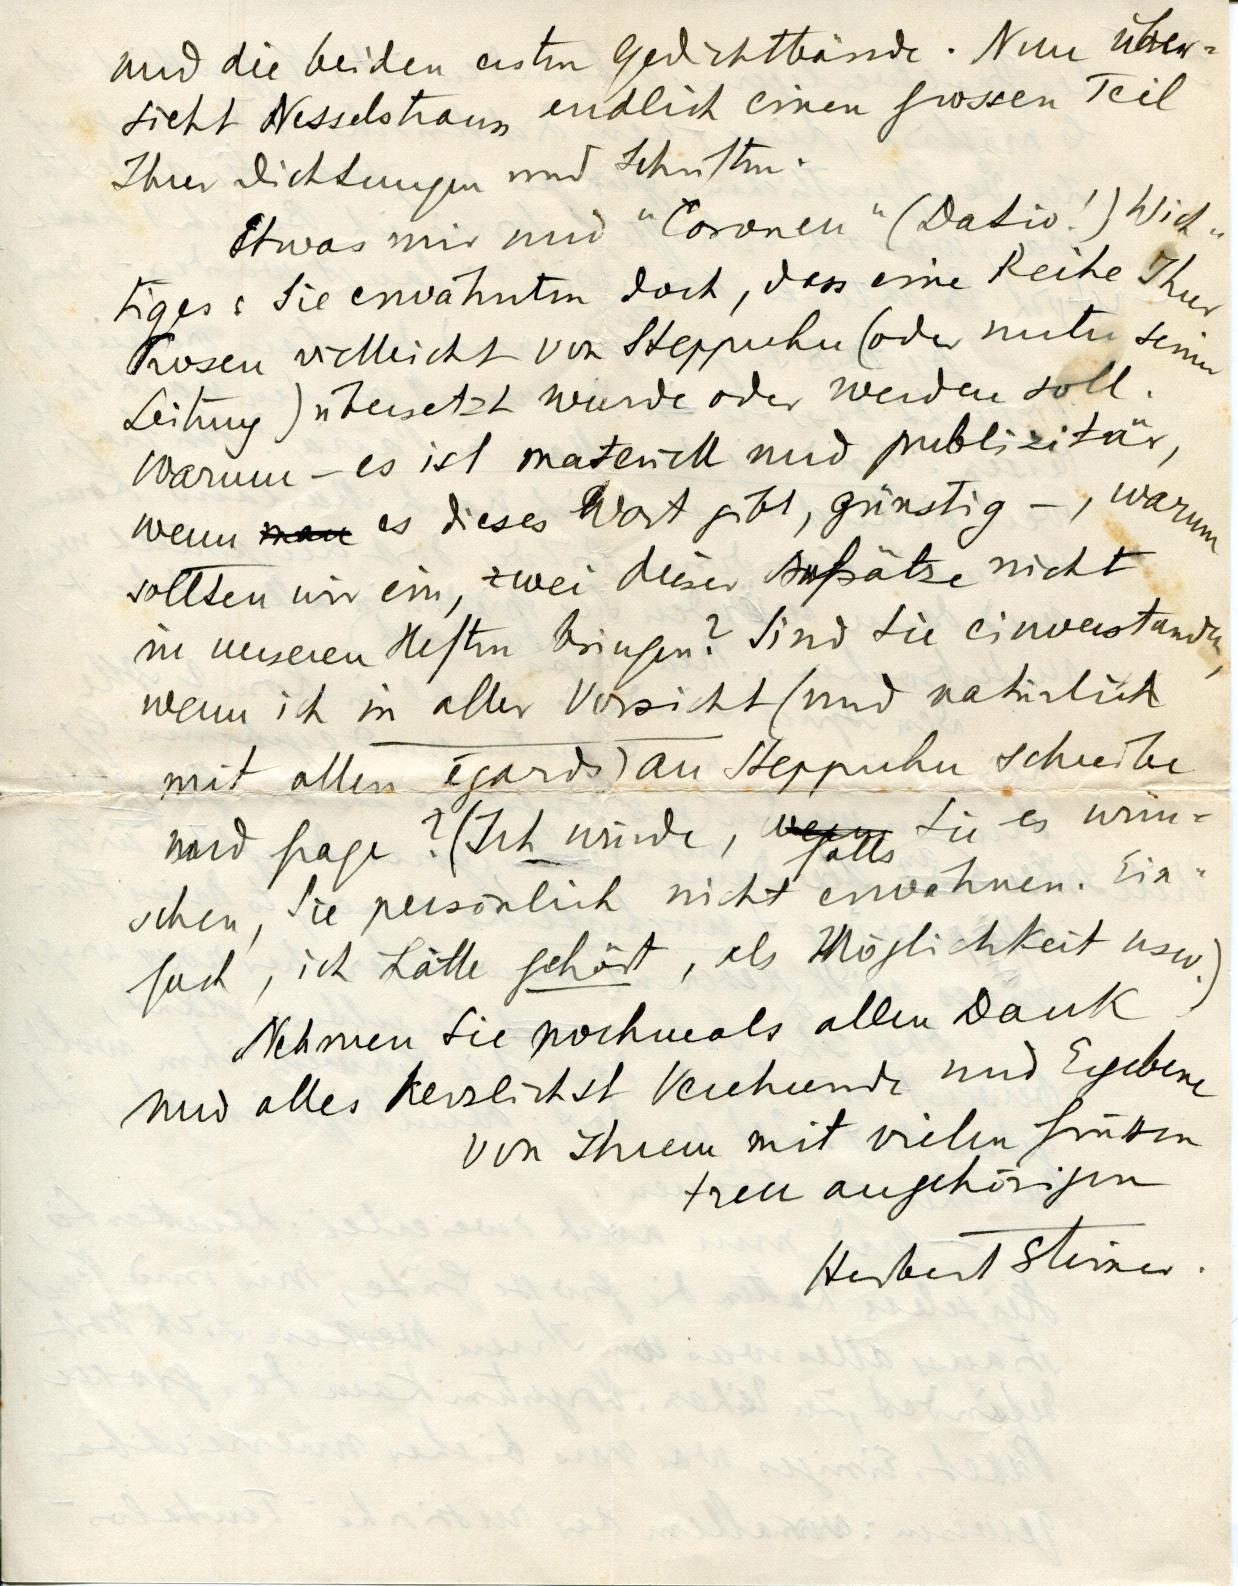 und die beiden ersten Gedichtbände. Nun über-
sieht Nesselstrauss endlich einen grossen Teil
Ihrer Dichtungen und Schriften.
Etwas mir und "Coronen" (Dativ!) Wich-
tiges: Sie erwähnten doch, dass eine Reihe Ihrer
Prosen vielleicht von Steppuhn (oder unter seiner
Leitung) übersetzt wurde oder werden soll.
Warum – es ist materiell und publizitär,
wenn man es dieses Wort gibt, günstig –, warum
sollten wir ein, zwei dieser Aufsätze nicht
in unseren Heften bringen? Sind Sie einverstanden,
wenn ich in aller Vorsicht (und natürlich
mit allen égards) an Steppuhn schreibe
und frage? (Ich würde, wenn falls Sie es wün-
schen, Sie persönlich nicht erwähnen. Ein-
fach, ich hätte gehört, als Möglichkeit usw.)
Nehmen Sie nochmals allen Dank
und alles herzlichst Verehrende und Ergebene
von Ihrem mit vielen Grüssen
treu angehörigen
Herbert Steiner.